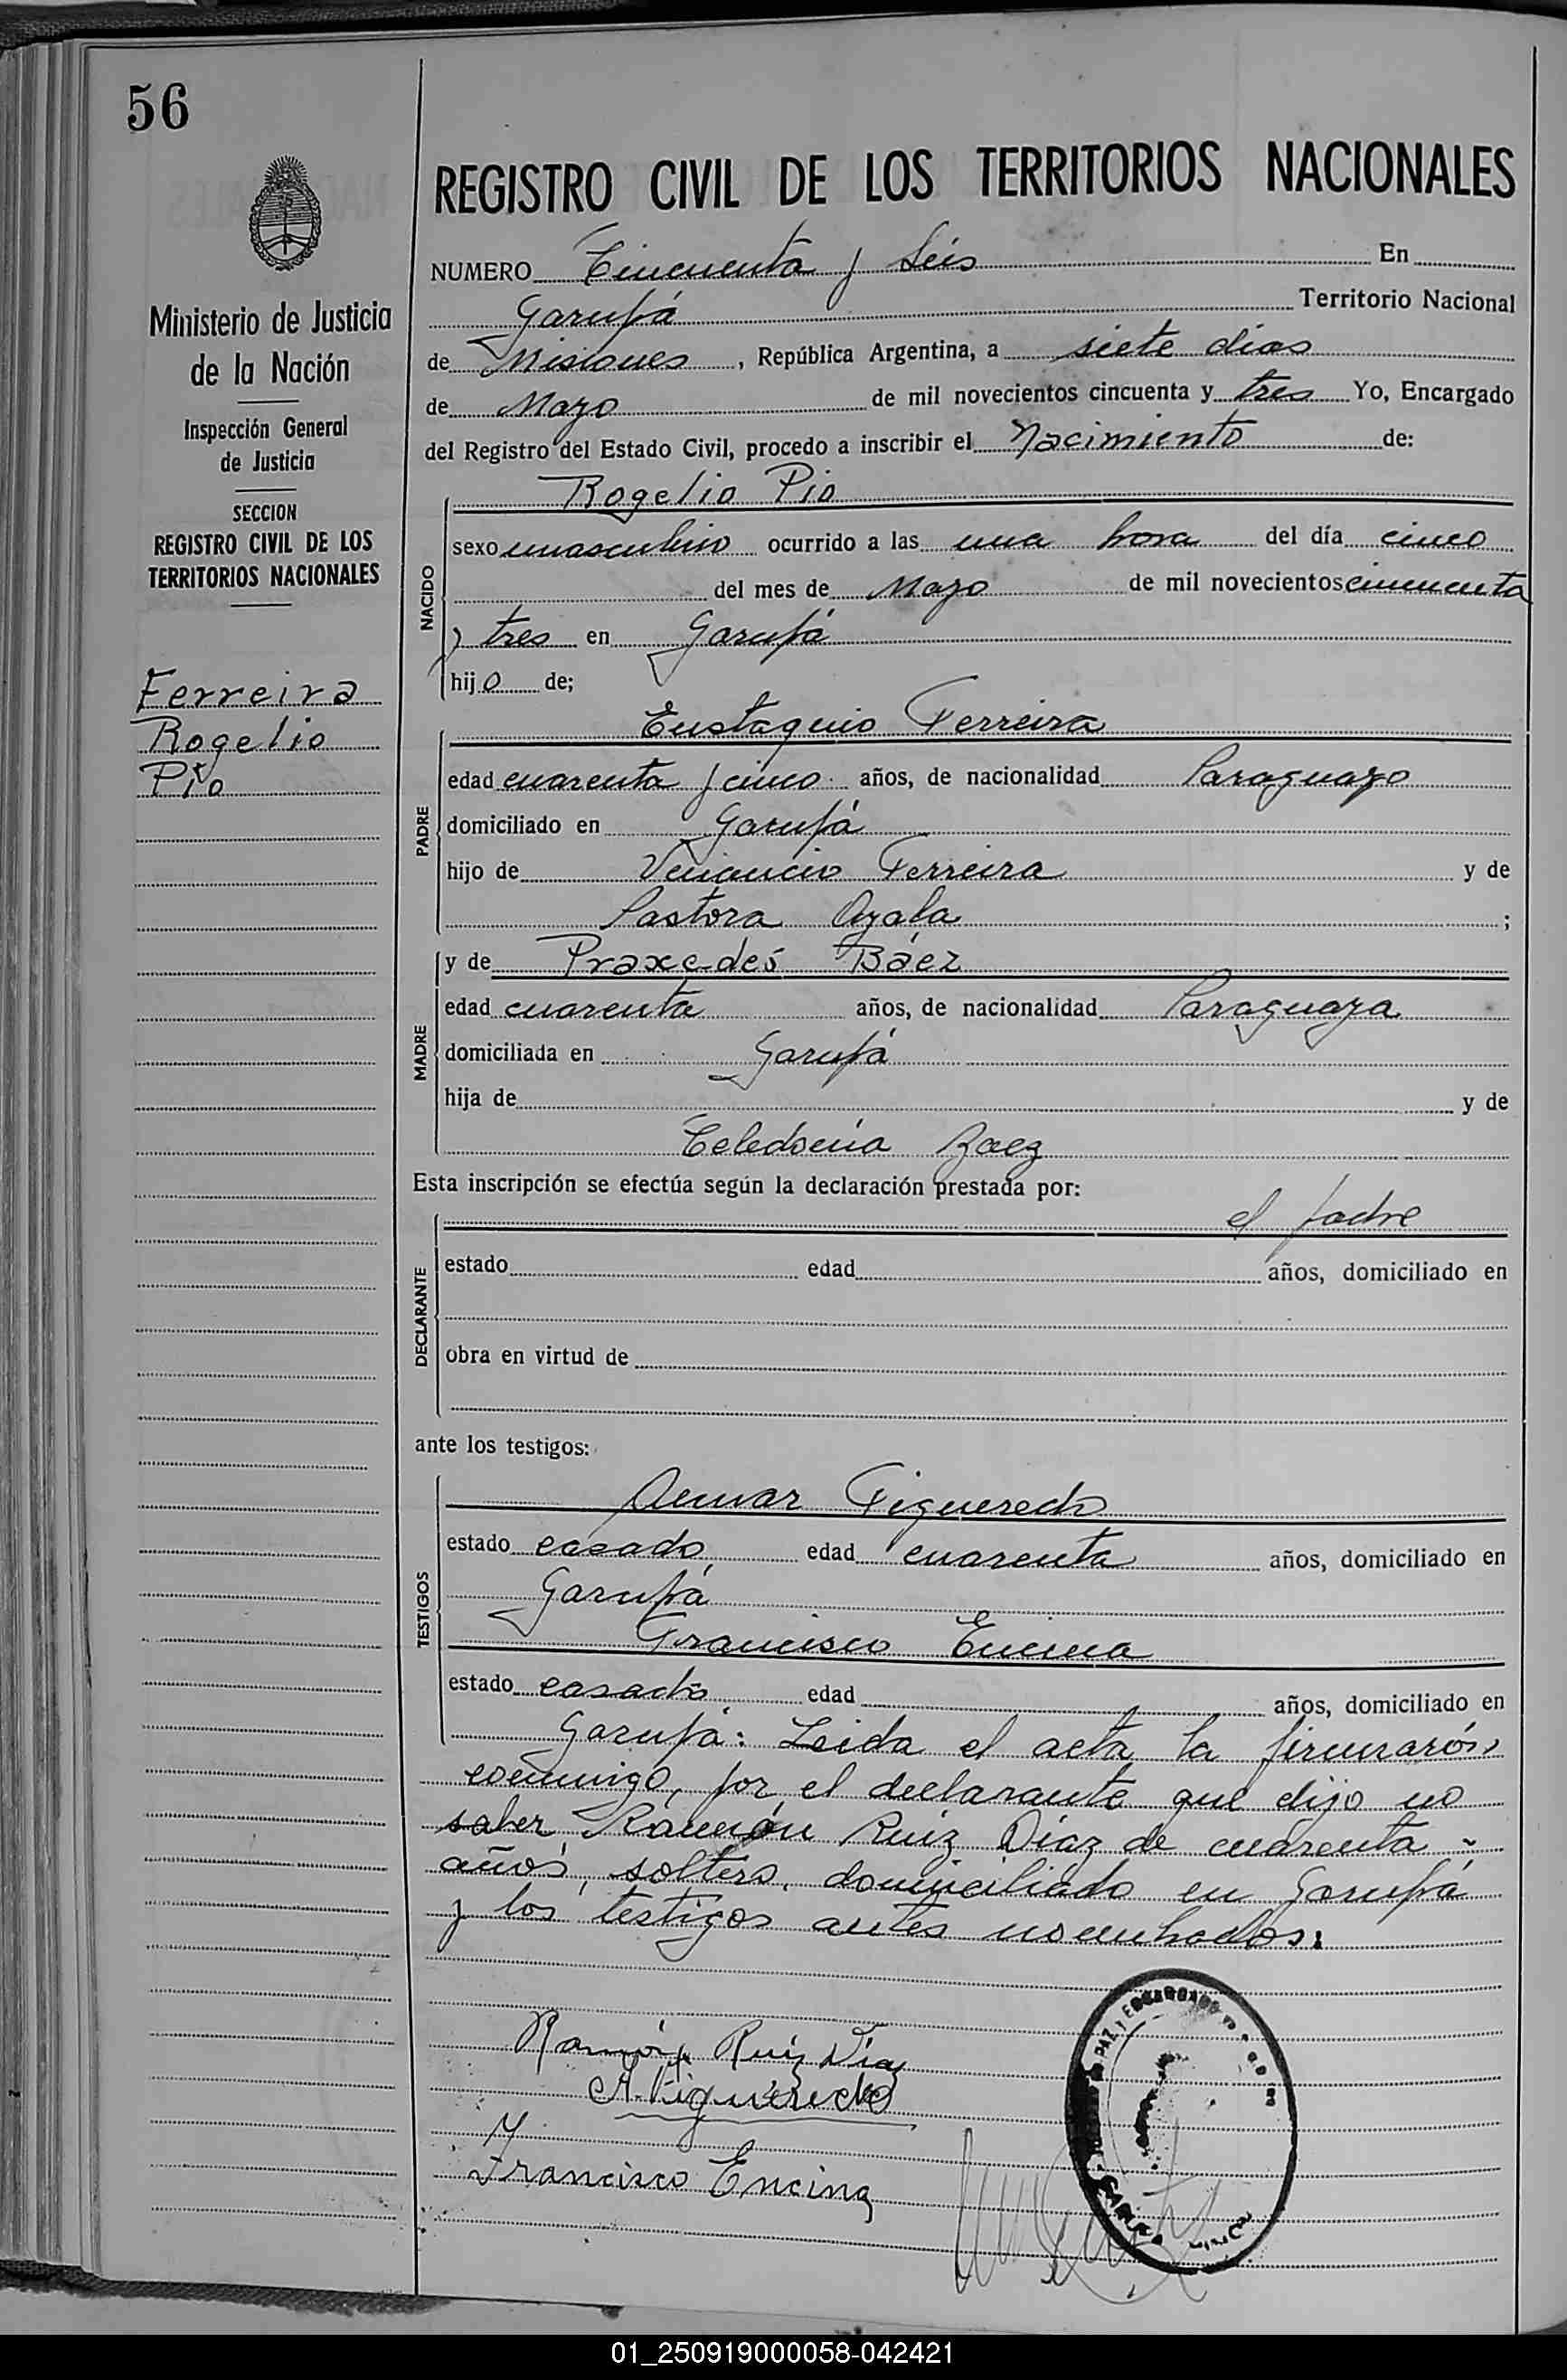 56
REGISTRO CIVIL DE LOS TERRITORIOS NACIONALES
Ministerio de Justicia
de la Nación
Inspección General
de Justicia
SECCION
REGISTRO CIVIL DE LOS
TERRITORIOS NACIONALES
Ferreira
Rogelio
Pío
NUMERO Cincuenta y Seis En
Garupá Territorio Nacional
de Misiones, República Argentina, a siete dias
de Mayo de mil novecientos cincuenta y tres Yo, Encargado
del Registro del Estado Civil, procedo a inscribir el Nacimiento de:
Rogelio Pio
NACIDO
sexo masculino ocurrido a las una hora del día cinco
del mes de Mayo de mil novecientos cincuenta
y tres en Garupá
hijo de;
Eustaquio Ferreira
PADRE
edad cuarenta y cinco años, de nacionalidad Paraguayo
domiciliado en Garupá
hijo de Venancio Ferreira y de
Pastora Ayala ;
y de Praxedes Báez
MADRE
edad cuarenta años, de nacionalidad Paraguaya
domiciliada en Garupá
hija de y de
Celedonia Baez
Esta inscripción se efectúa según la declaración prestada por:
el padre
DECLARANTE
estado edad años, domiciliado en
obra en virtud de
ante los testigos:
TESTIGOS
Figueredo
estado casado edad cuarenta años, domiciliado en
Garupá
Francisco Encina
estado casado edad años, domiciliado en
Garupá: Leida el acta la firmarón
conmigo, por el declarante que dijo no
saber Ramón Ruiz Díaz de cuarenta
años, soltero, domiciliado en Garupá
y los testigos antes nombrados.
Ramón Ruiz Diaz
A. Figueredo
Francisco Encina
PAZ Y ENCARGADO
GARUPA
01_250919000058-042421